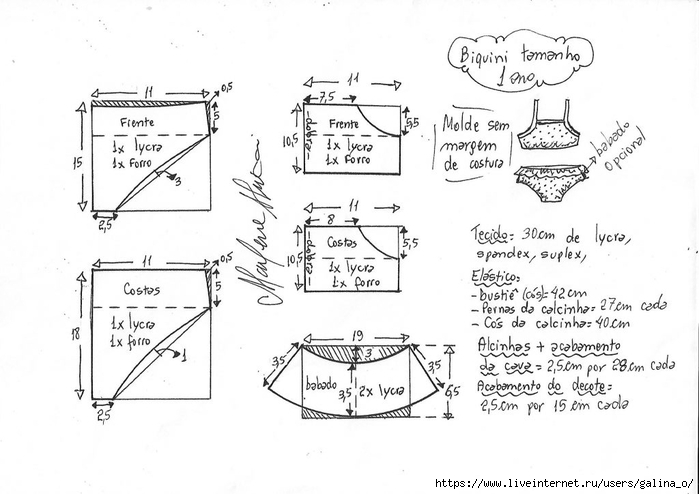 Biquini tamanho
1 ano
11
0,5
5
15
Frente
1x lycra
1x forro
3
2,5
11
7,5
10,5
dobra
Frente
1x lycra
1x forro
5,5
Molde sem
margem
de costura
babado
opcional
11
5
18
Costas
1x lycra
1x forro
1
2,5
11
8
10,5
dobra
Costas
1x lycra
1x forro
5,5
Tecido= 30cm de lycra,
spandex, suplex,
Elástico:
-bustiê (cós)= 42cm
- Pernas da calcinha= 27cm cada
- Cós da calcinha= 40cm
Alcinhas + acabamento
da cava= 2,5cm por 28cm cada
Acabamento do decote=
2,5cm por 15cm cada
19
3,5
3
3,5
babado
3,5
2x lycra
6,5
https://www.liveinternet.ru/users/galina_o/